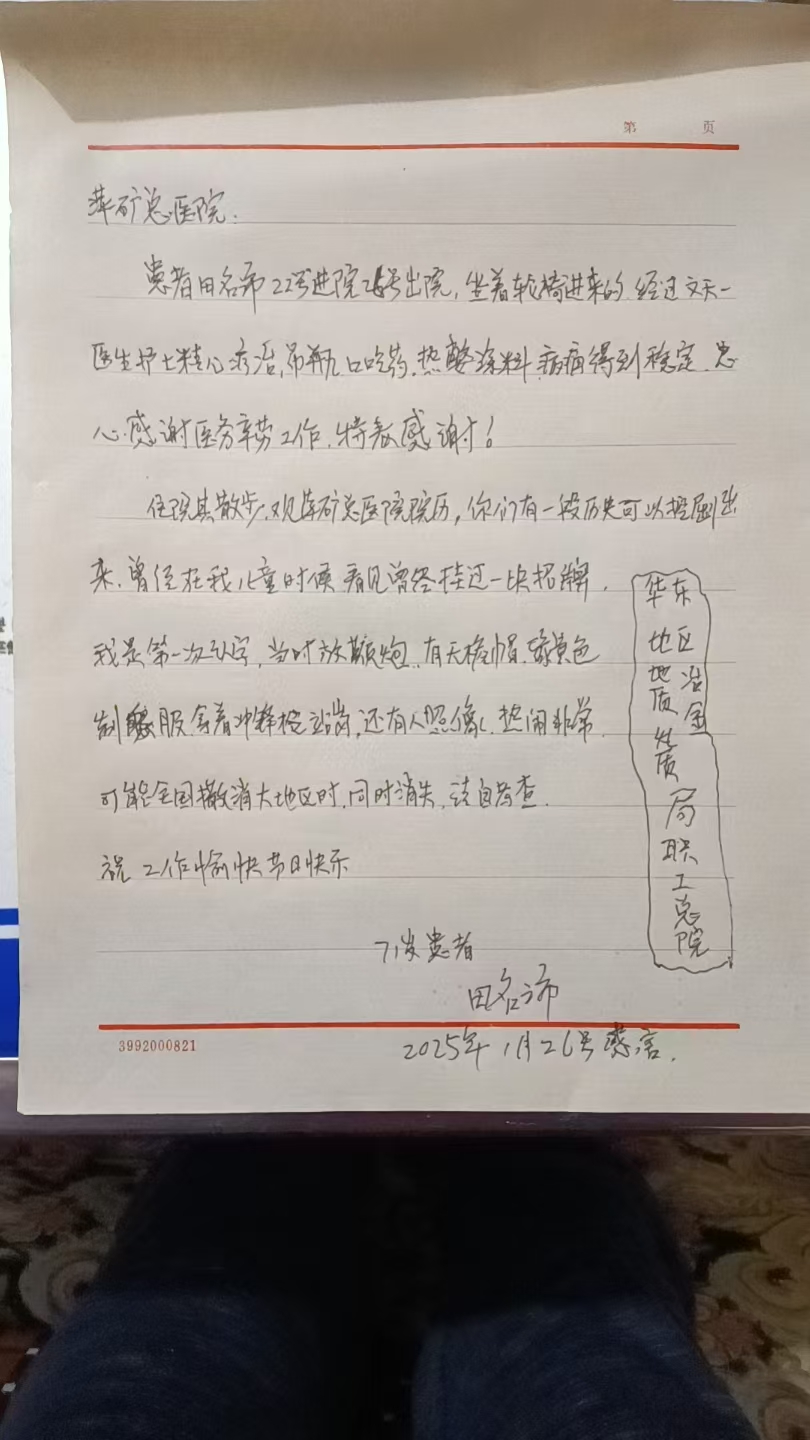 第 页
萍矿总医院.
患者田名沛22号进院26号出院,坐着轮椅进来的.经过文天一
医生护士精心疗治,吊瓶 口吃药.热 涂料.病痛得到稳定.忠
心感谢医务辛劳工作.特致感谢!
住院其散步.观萍矿总医院院历,你们有一段历史可以挖掘出
来.曾经在我儿童时候看见曾经挂过一块招牌.
我是第一次认字,当时放颗炮.有无檐帽.绿黄色
制服.拿着冲锋枪站岗,还有人照像.热闹非常.
可能全国撤消大地区时.同时消失.请自考查.
祝 工作愉快节日快乐
华东
地区
地质
冶金
局
职
工
总
院
71岁患者
田名沛
2025年1月26号感言.
3992000821